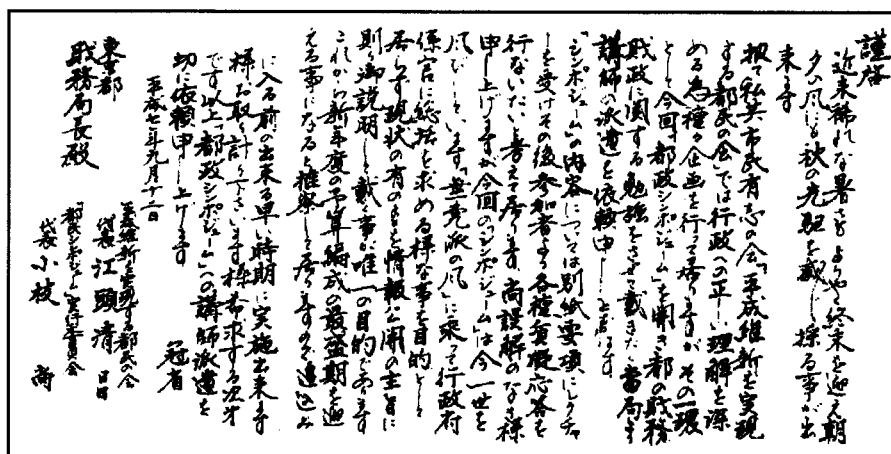 謹啓
近来稀れな暑さもようやく終末を迎え朝
夕の風にも秋の先駆を感じ採る事が出
来ます
扨て私共市民有志の会「平成維新を実現
する都民の会」では行政への正しい理解を深
める為種々企画を行って居りますが その一環
として今回「都政シンポジューム」を開き都の財務
財政に関する勉強をさせて戴きたく当局より
講師の派遣を依頼申し上げます
「シンポジューム」の内容については別紙要項にレクチャ
ーを受けその後参加者より各種質疑応答を
行ないたいと考えて居ります、尚誤解のなき様
申し上げますが今回の「シンポジューム」は今一世を
風びしています「無党派の風」に乗って行政府
係官に総括を求める様な事を目的として
居らず現状の有のままを情報公開の主旨に
則り御説明して戴く事が唯一の目的であります
これから新年度の予算編成の最盛期を迎
える事になると推察して居りますので追込み
に入る前の出来る早い時期に実施出来ます
様お取り計り下さいます様希求する次第
です 以上「都政シンポジューム」への講師派遣を
切に依頼申し上げます
冠省
平成七年九月十二日
平成維新を実現する都民の会
代表 江頭清昌
「都政シンポジューム」実行委員会
代表 小枝 尚
東京都
財務局長殿